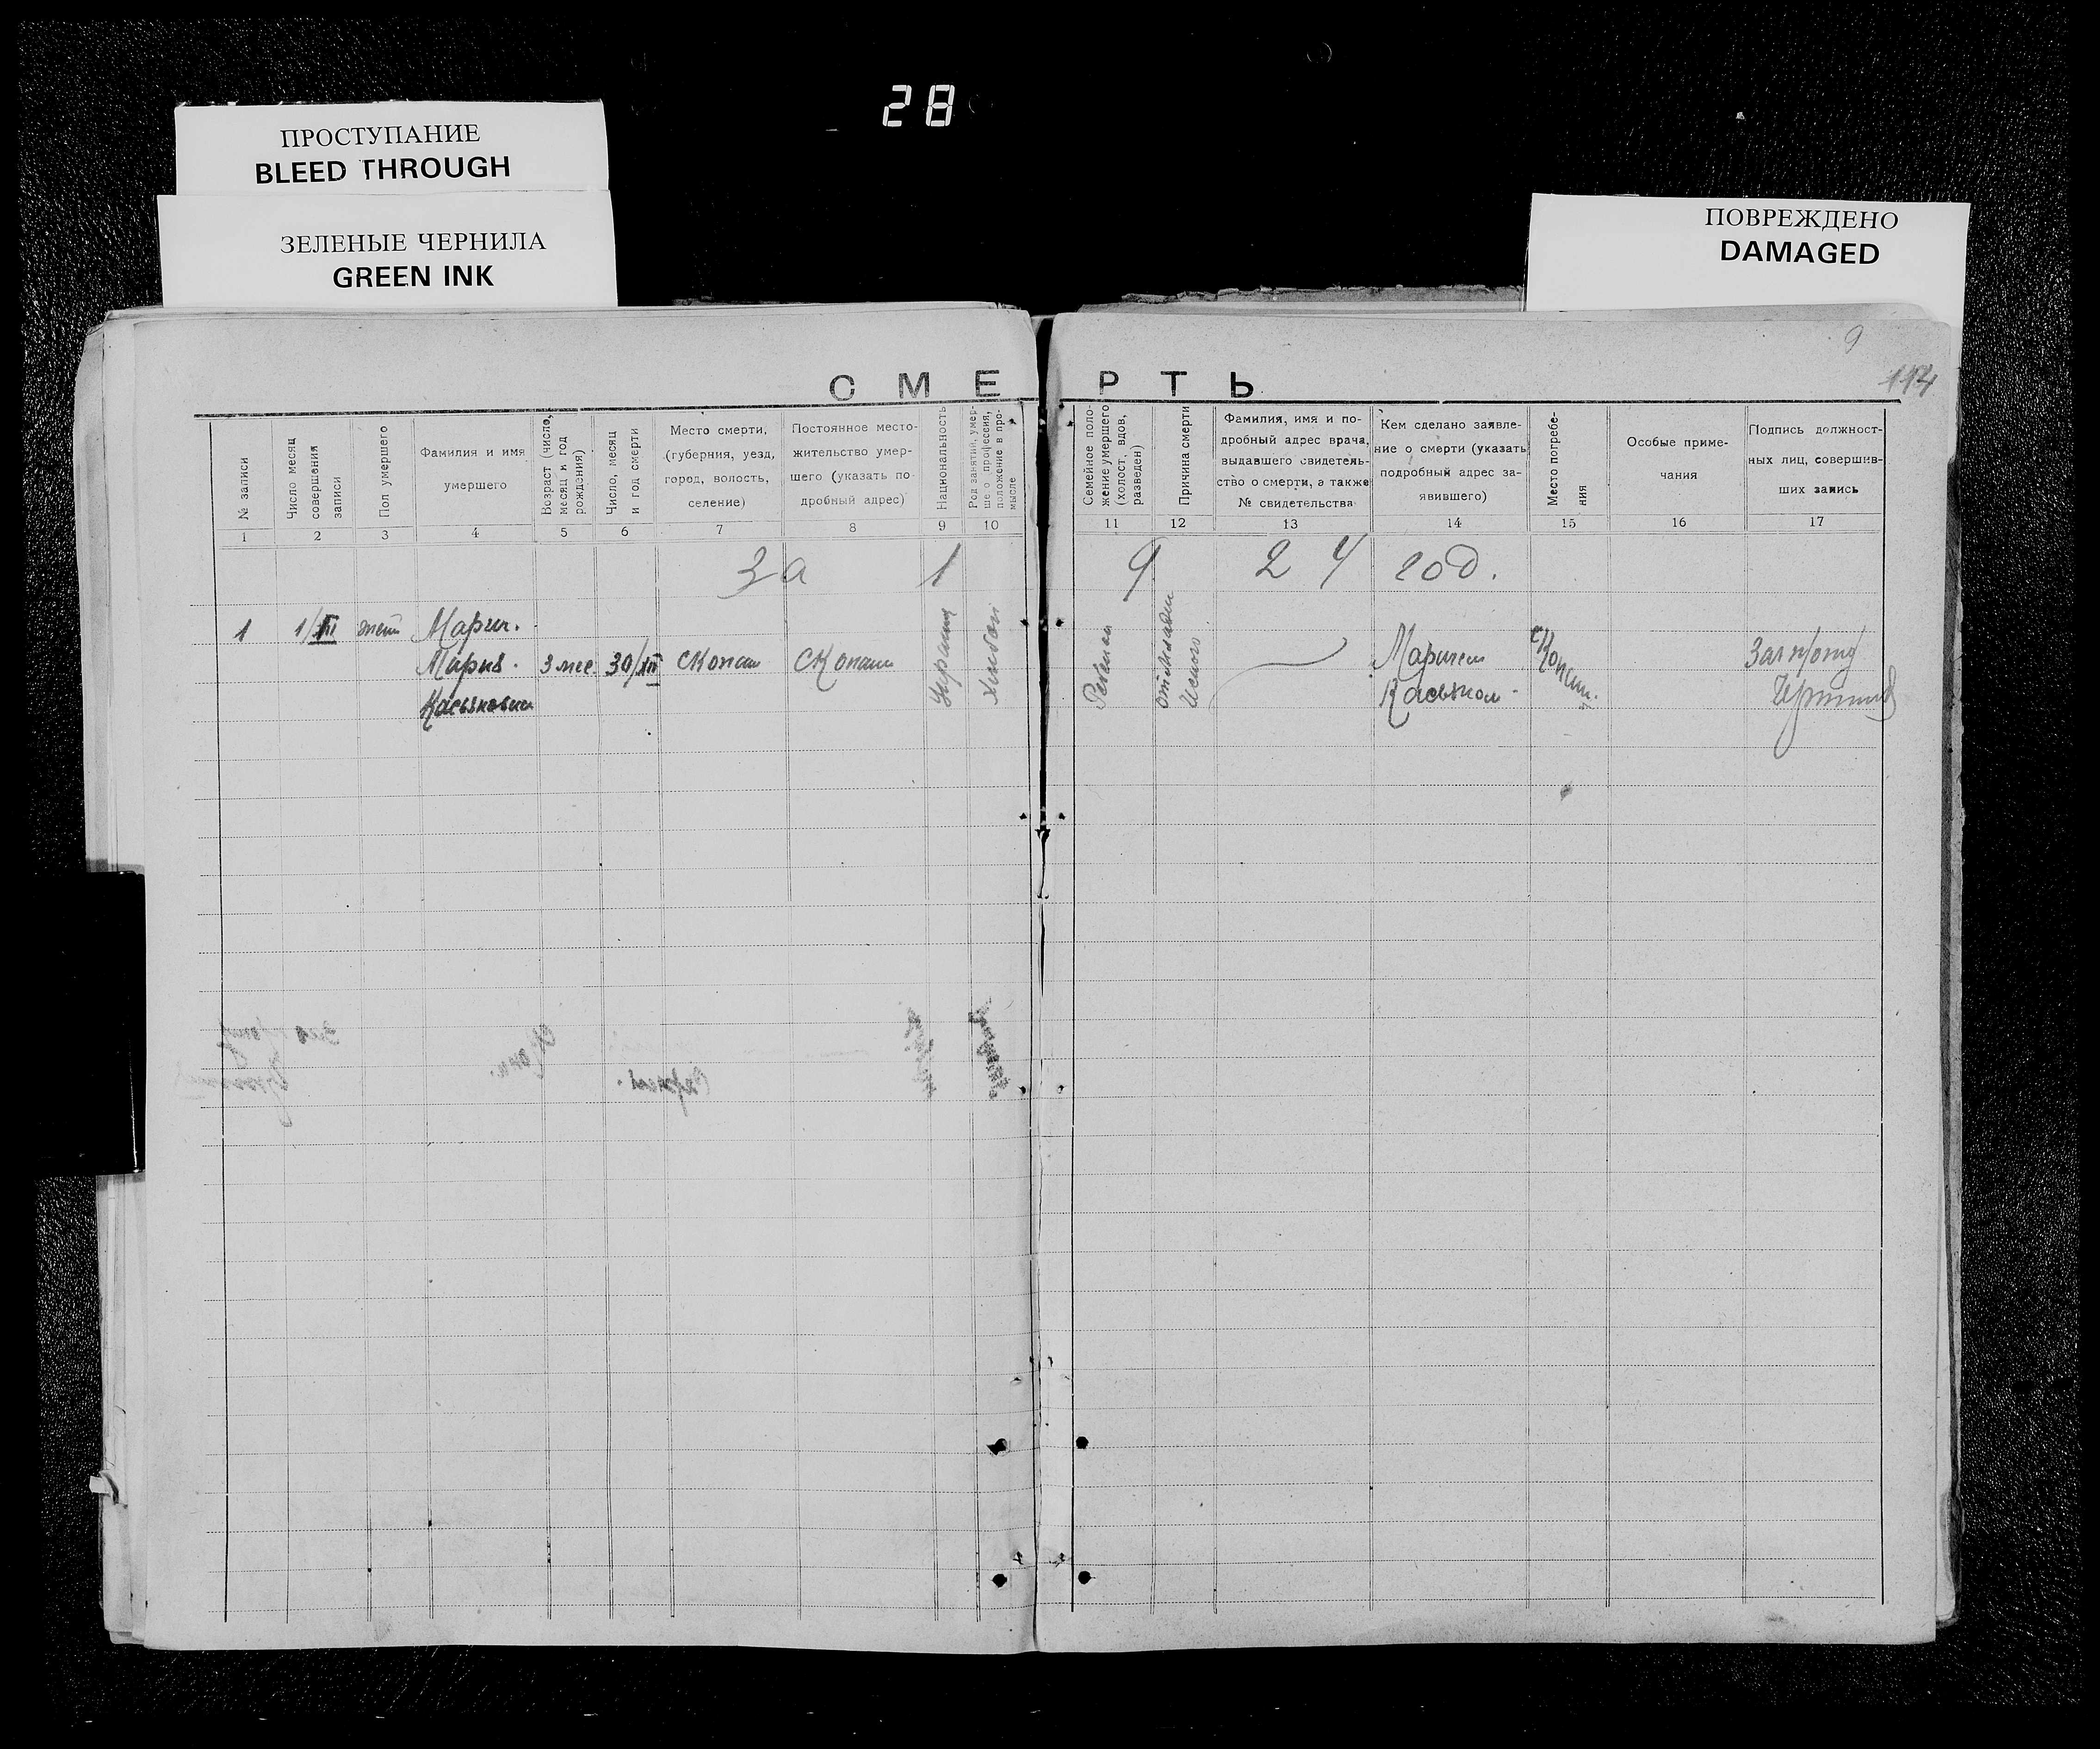 28
ПРОСТУПАНИЕ
BLEED THROUGH
ЗЕЛЕНЫЕ ЧЕРНИЛА
GREEN INK
ПОВРЕЖДЕНО
DAMAGED
9
114
СМЕРТЬ
№ записи
Число месяц
совершения
записи
Пол умершего
Фамилия и имя
умершего
Возраст (число,
месяц и год
рождения)
Число, месяц
и год смерти
Место смерти,
(губерния, уезд,
город, волость,
селение)
Постоянное место-
жительство умер-
шего (указать по
дробный адрес)
Национальность
Род занятий, умер-
ше о профессия,
положение в про-
мысле
Семейное поло-
жение умершего
(холост, вдов,
разведен)
Причина смерти
Фамилия, имя и по-
дробный адрес врача,
выдавшего свидетель-
ство о смерти, а также
№ свидетельства
Кем сделано заявле-
ние о смерти (указать
подробный адрес за-
явившего)
Место погребе-
ния
Особые приме-
чания
Подпись должност-
ных лиц, совершив-
ших запись
1 2 3 4 5 6 7 8 9 10 11 12 13 14 15 16 17
За 1 9 2 4 год.
1 1/III жен Марич.
Мария. 3 мес 30/XII с Копани с Копани